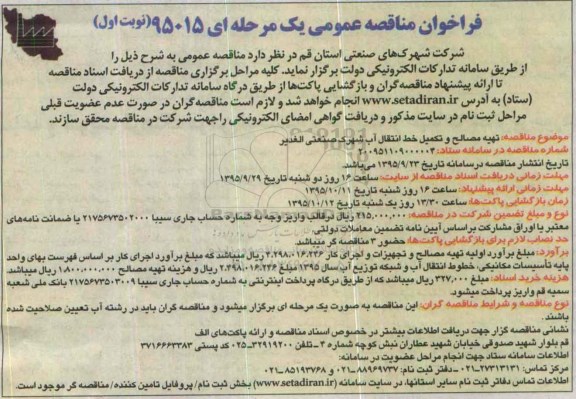 فراخوان مناقصه عمومی یک مرحله ای ۹۵۰۱۵(نوبت اول)
شرکت شهرک‌های صنعتی استان قم در نظر دارد مناقصه عمومی به شرح ذیل را
از طریق سامانه تدارکات الکترونیکی دولت برگزار نماید. کلیه مراحل برگزاری مناقصه از دریافت اسناد مناقصه
تا ارائه پیشنهاد مناقصه‌گران و بازگشایی پاکت‌ها از طریق درگاه سامانه تدارکات الکترونیکی دولت
(ستاد) به آدرس www.setadiran.ir انجام خواهد شد و لازم است مناقصه‌گران در صورت عدم عضویت قبلی
مراحل ثبت نام در سایت مذکور و دریافت گواهی امضای الکترونیکی را جهت شرکت در مناقصه محقق سازند.
موضوع مناقصه: تهیه مصالح و تکمیل خط انتقال آب شهرک صنعتی الغدیر
شماره مناقصه در سامانه ستاد: ۲۰۰۹۵۱۱۰۹۰۰۰۰۰۴
تاریخ انتشار مناقصه درسامانه تاریخ ۱۳۹۵/۹/۲۳ می‌باشد.
مهلت زمانی دریافت اسناد مناقصه از سایت: ساعت ۱۶ روز دو شنبه تاریخ ۱۳۹۵/۹/۲۹
مهلت زمانی ارائه پیشنهاد: ساعت ۱۶ روز شنبه تاریخ ۱۳۹۵/۱۰/۱۱
زمان بازگشایی پاکت‌ها: ساعت ۱۳/۳۰ روز یک شنبه تاریخ ۱۳۹۵/۱۰/۱۲
نوع و مبلغ تضمین شرکت در مناقصه: ۲۱۵.۰۰۰.۰۰۰ ریال درقالب واریز وجه به شماره حساب جاری سیبا ۲۱۷۵۶۷۳۵۰۲۰۰۰ یا ضمانت نامه‌های
معتبر یا اوراق مشارکت براساس آیین نامه تضمین معاملات دولتی.
حد نصاب لازم برای بازگشایی پاکت‌ها: حضور ۳ مناقصه گر میباشد.
برآورد: مبلغ برآورد اولیه تهیه مصالح و تجهیزات و اجرای کار ۴.۲۹۸.۰۱۶.۲۳۶ ریال میباشد که مبلغ برآورد اجرای کار بر اساس فهرست بهای واحد
پایه تأسیسات مکانیکی، خطوط انتقال آب و شبکه توزیع آب سال ۱۳۹۵ مبلغ ۲.۴۹۸.۰۱۶.۲۳۶ ریال و هزینه تهیه مصالح ۱.۸۰۰.۰۰۰.۰۰۰ ریال میباشد.
هزینه خرید اسناد: مبلغ ۳۲۷.۰۰۰ ریال میباشد که از طریق درگاه پرداخت اینترنتی به شماره حساب جاری سیبا ۲۱۷۵۶۷۳۵۰۳۰۰۹ بانک ملی شعبه
سمیه قم واریز پرداخت میشود.
نوع مناقصه و شرایط مناقصه گران: این مناقصه به صورت یک مرحله ای برگزار میشود و مناقصه گران باید در رشته آب تعیین صلاحیت شده
باشند.
نشانی مناقصه گزار جهت دریافت اطلاعات بیشتر در خصوص اسناد مناقصه و ارائه پاکت‌های الف
قم بلوار شهید صدوقی خیابان شهید عطاران نبش کوچه شماره ۲ـ تلفن ۳۲۹۱۹۲۰۰-۰۲۵ کد پستی ۳۷۱۶۶۶۳۳۸۳
اطلاعات سامانه ستاد جهت انجام مراحل عضویت در سامانه:
مرکز تماس: ۲۷۳۱۳۱۳۱-۰۲۱ - دفتر ثبت نام: ۸۸۹۶۹۷۳۷-۰۲۱ و ۸۵۱۹۳۷۶۸-۰۲۱
اطلاعات تماس دفاتر ثبت نام سایر استانها، در سایت سامانه (www.setadiran.ir) بخش ثبت نام/ پروفایل تامین کننده/ مناقصه گر موجود است.